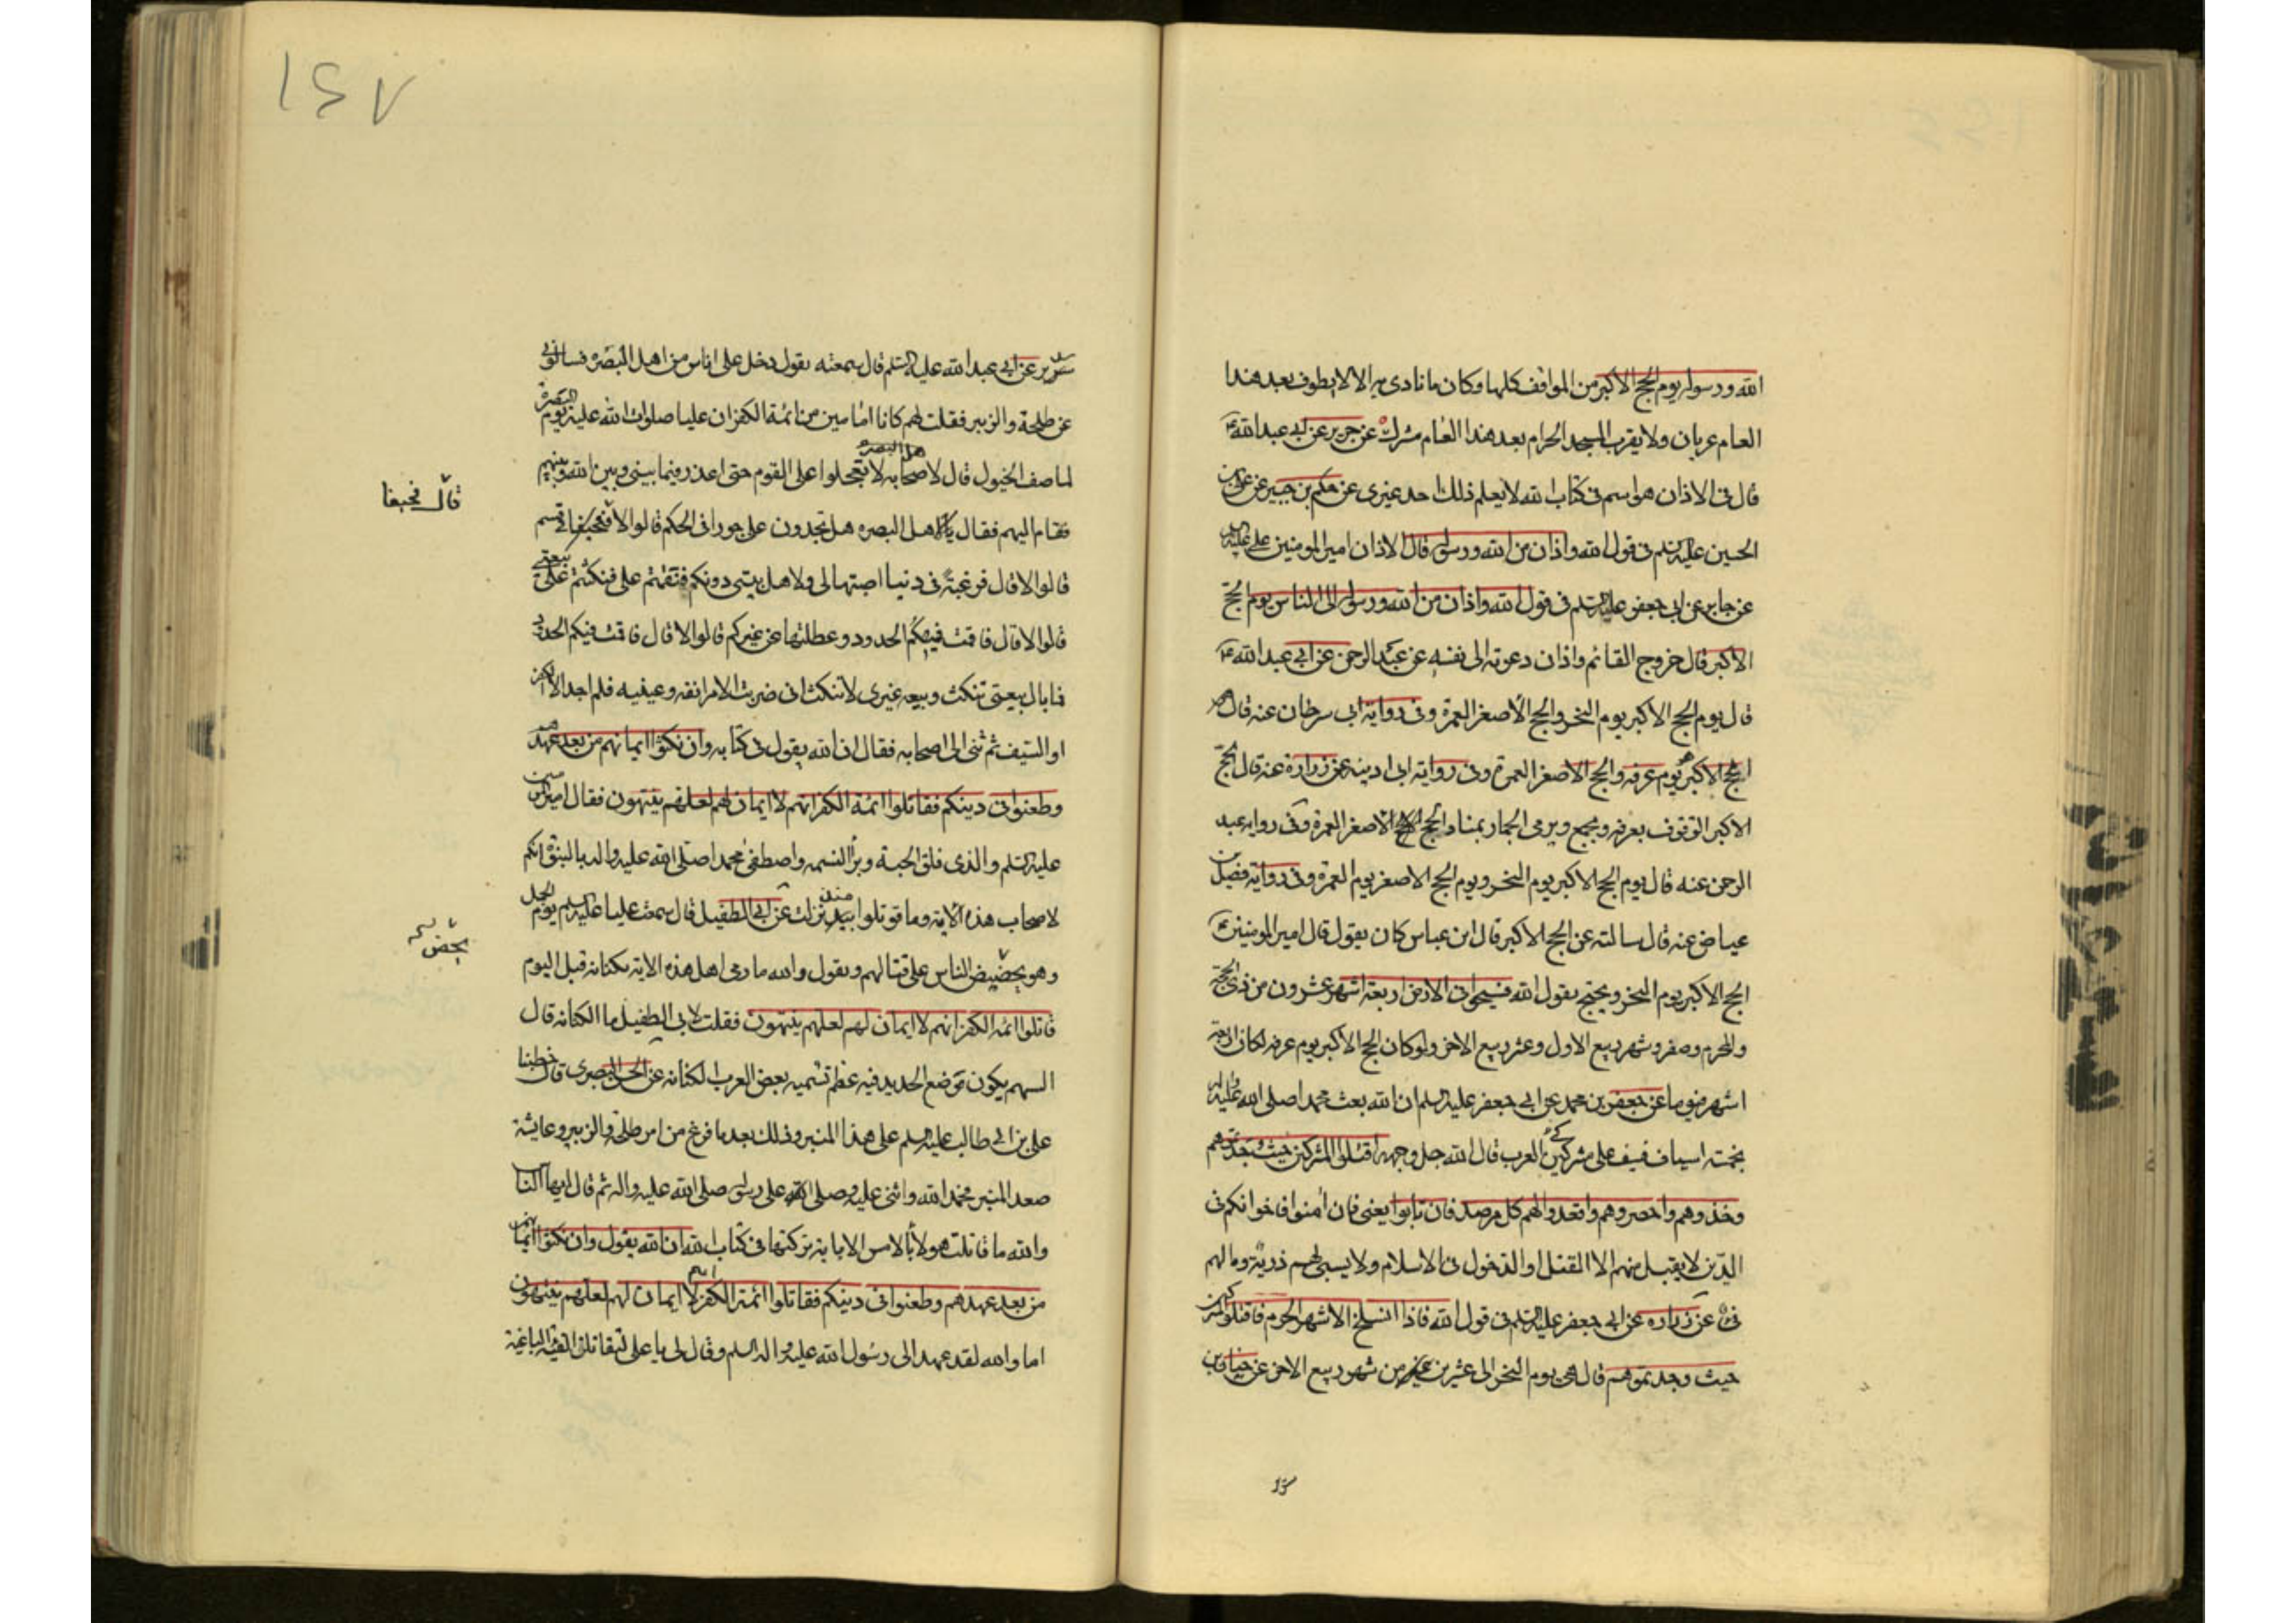 الله ورسوله يوم الحج الاكبر من المواقف كلها وكان ما نادى به الا لا يطوف بعد هذا
العام عريان ولا يقرب المسجد الحرام بعد هذا العام مشرك عن حريز عن ابي عبد الله ع
قال في الاذان هو اسم في كتاب الله لا يعلم ذلك احد غيري عن حكيم بن جبير عن علي بن
الحسين عليه السلم في قول الله واذان من الله ورسوله قال الاذان امير المومنين علي عليه
عن جابر عن ابي جعفر عليه السلم في قول الله واذان من الله ورسوله الى الناس يوم الحج
الاكبر قال خروج القائم واذان دعوته الى نفسه عن عبد الرحمن عن ابي عبد الله ع
قال يوم الحج الاكبر يوم النحر والحج الاصغر العمرة وفي رواية ابي سرحان عنه قال
الحج الاكبر يوم عرفه والحج الاصغر العمرة وفي رواية ابن ادينه عن زرارة عنه قال الحج
الاكبر الوقوف بعرفه وبجمع ويرمى الجمار بمنا والحج الاصغر العمرة وفي رواية عبد
الرحمن عنه قال يوم الحج الاكبر يوم النحر ويوم الحج الاصغر يوم العمرة وفي رواية فضيل بن
عياض عنه قال سالته عن الحج الاكبر قال ابن عباس كان يقول قال امير المومنين ع
الحج الاكبر يوم النحر ويحتج بقول الله فسيحوا في الارض اربعة اشهر عشرون من ذي الحجة
والمحرم وصفر وشهر ربيع الاول وعشر ربيع الاخر ولو كان الحج الاكبر يوم عرفه لكان اربعة
اشهر ويوما عن جعفر بن محمد عن ابي جعفر عليه السلم ان الله بعث محمدا صلى الله عليه واله
بخمسة اسياف فسيف على مشركي العرب قال الله جل وجهه اقتلوا المشركين حيث وجدتموهم
وخذوهم واحصروهم واقعدوا لهم كل مرصد فان تابوا يعني فان امنوا فاخوانكم في
الدين لا يقبل منهم الا القتل او الدخول في الاسلام ولا يسبى لهم ذرية وما لهم
فئ عن زراره عن ابي جعفر عليه السلم في قول الله فاذا انسلخ الاشهر الحرم فاقتلوا المشركين
حيث وجدتموهم قال هي يوم النحر الى عشر من شهر ربيع الاخر عن حنان بن
سدير
١٤٧
سدير عن ابي عبد الله عليه السلم قال سمعته يقول دخل على اناس من اهل البصره فسالوني
عن طلحة والزبير فقلت لهم كانا امامين من ائمة الكفر ان عليا صلوات الله عليه يوم البصرة
لما صف الخيول قال لاصحابه لا تعجلوا على القوم حتى اعذر فيما بيني وبين الله وبينهم
فقام اليهم فقال يا اهل البصره هل تجدون علي جورا في الحكم قالوا لا قسم
قال فحيفا
قالوا لا قال فرغبة في دنيا اصبتها لي ولاهل بيتي دونكم فنقمتم علي فنكثتم علي بيعتي
قالوا لا قال فاقمت فيكم الحدود وعطلتها عن غيركم قالوا لا قال فاقمت فيكم الحدود
فما بال بيعتي تنكث وبيعه غيري لا تنكث اني ضربت الامر انفه وعينيه فلم اجد الا الكفر
او السيف ثم ثنى الى اصحابه فقال ان الله يقول في كتابه وان نكثوا ايمانهم من بعد عهدهم
وطعنوا في دينكم فقاتلوا ائمة الكفر انهم لا ايمان لهم لعلهم ينتهون فقال امير المومنين
عليه السلم والذي فلق الحبة وبرأ النسمه واصطفى محمدا صلى الله عليه واله بالنبوة انكم
لاصحاب هذه الاية وما قوتلوا منذ نزلت عن ابي الطفيل قال سمعت عليا عليه السلم يوم الجمل
وهو يحضض الناس على قتالهم ويقول والله ما رمى اهل هذه الاية بكنانه قبل اليوم
يحض
قاتلوا ائمة الكفر انهم لا ايمان لهم لعلهم ينتهون فقلت لابي الطفيل ما الكنانه قال
السهم يكون موضع الحديد فيه عظم تسميه بعض العرب الكنانه عن الحسن البصري قال خطبنا
علي بن ابي طالب عليه السلم على هذا المنبر وذلك بعد ما فرغ من امر طلحة والزبير وعايشة
صعد المنبر فحمد الله واثنى عليه وصلى على رسوله صلى الله عليه واله ثم قال ايها الناس
والله ما قاتلت هولاء بالامس الا باية تركتها في كتاب الله ان الله يقول وان نكثوا ايمانهم
من بعد عهدهم وطعنوا في دينكم فقاتلوا ائمة الكفر انهم لا ايمان لهم لعلهم ينتهون
اما والله لقد عهد الى رسول الله عليه واله السلم وقال لي يا علي لتقاتلن الفئة الباغية